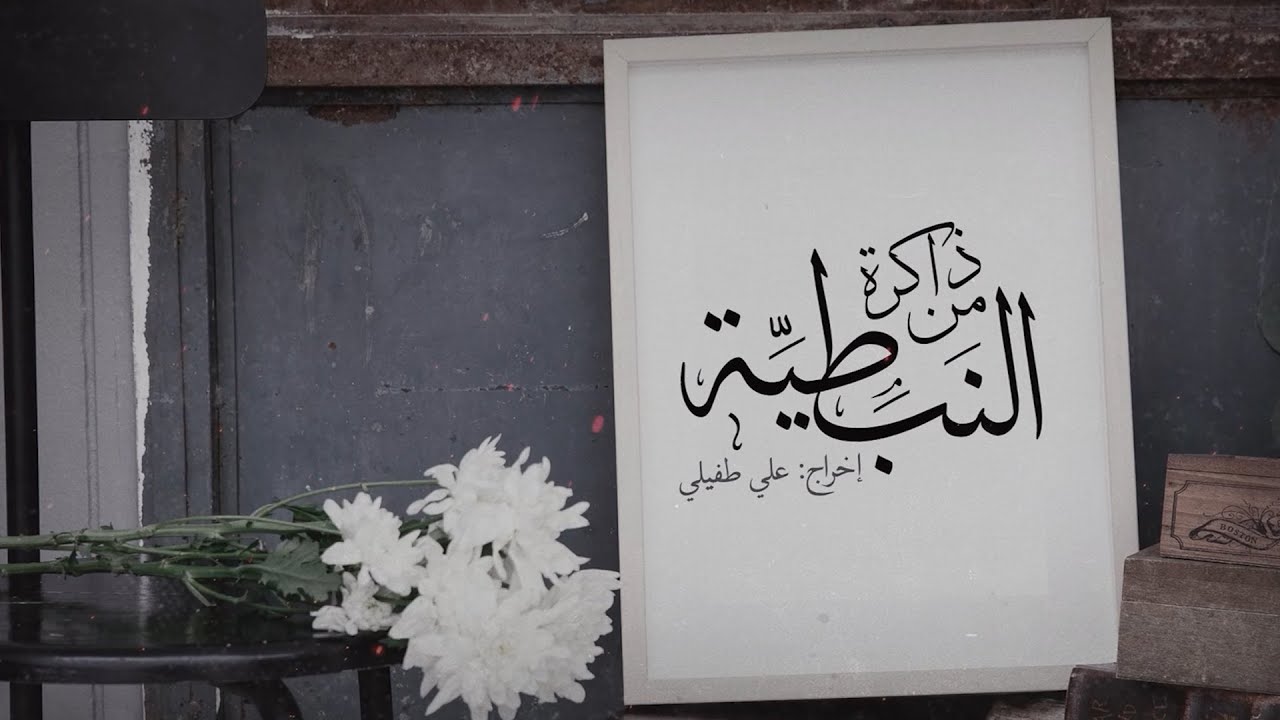 ذاكرة
من
النَبَاطيَّة
إخراج: علي طفيلي
BOSTON